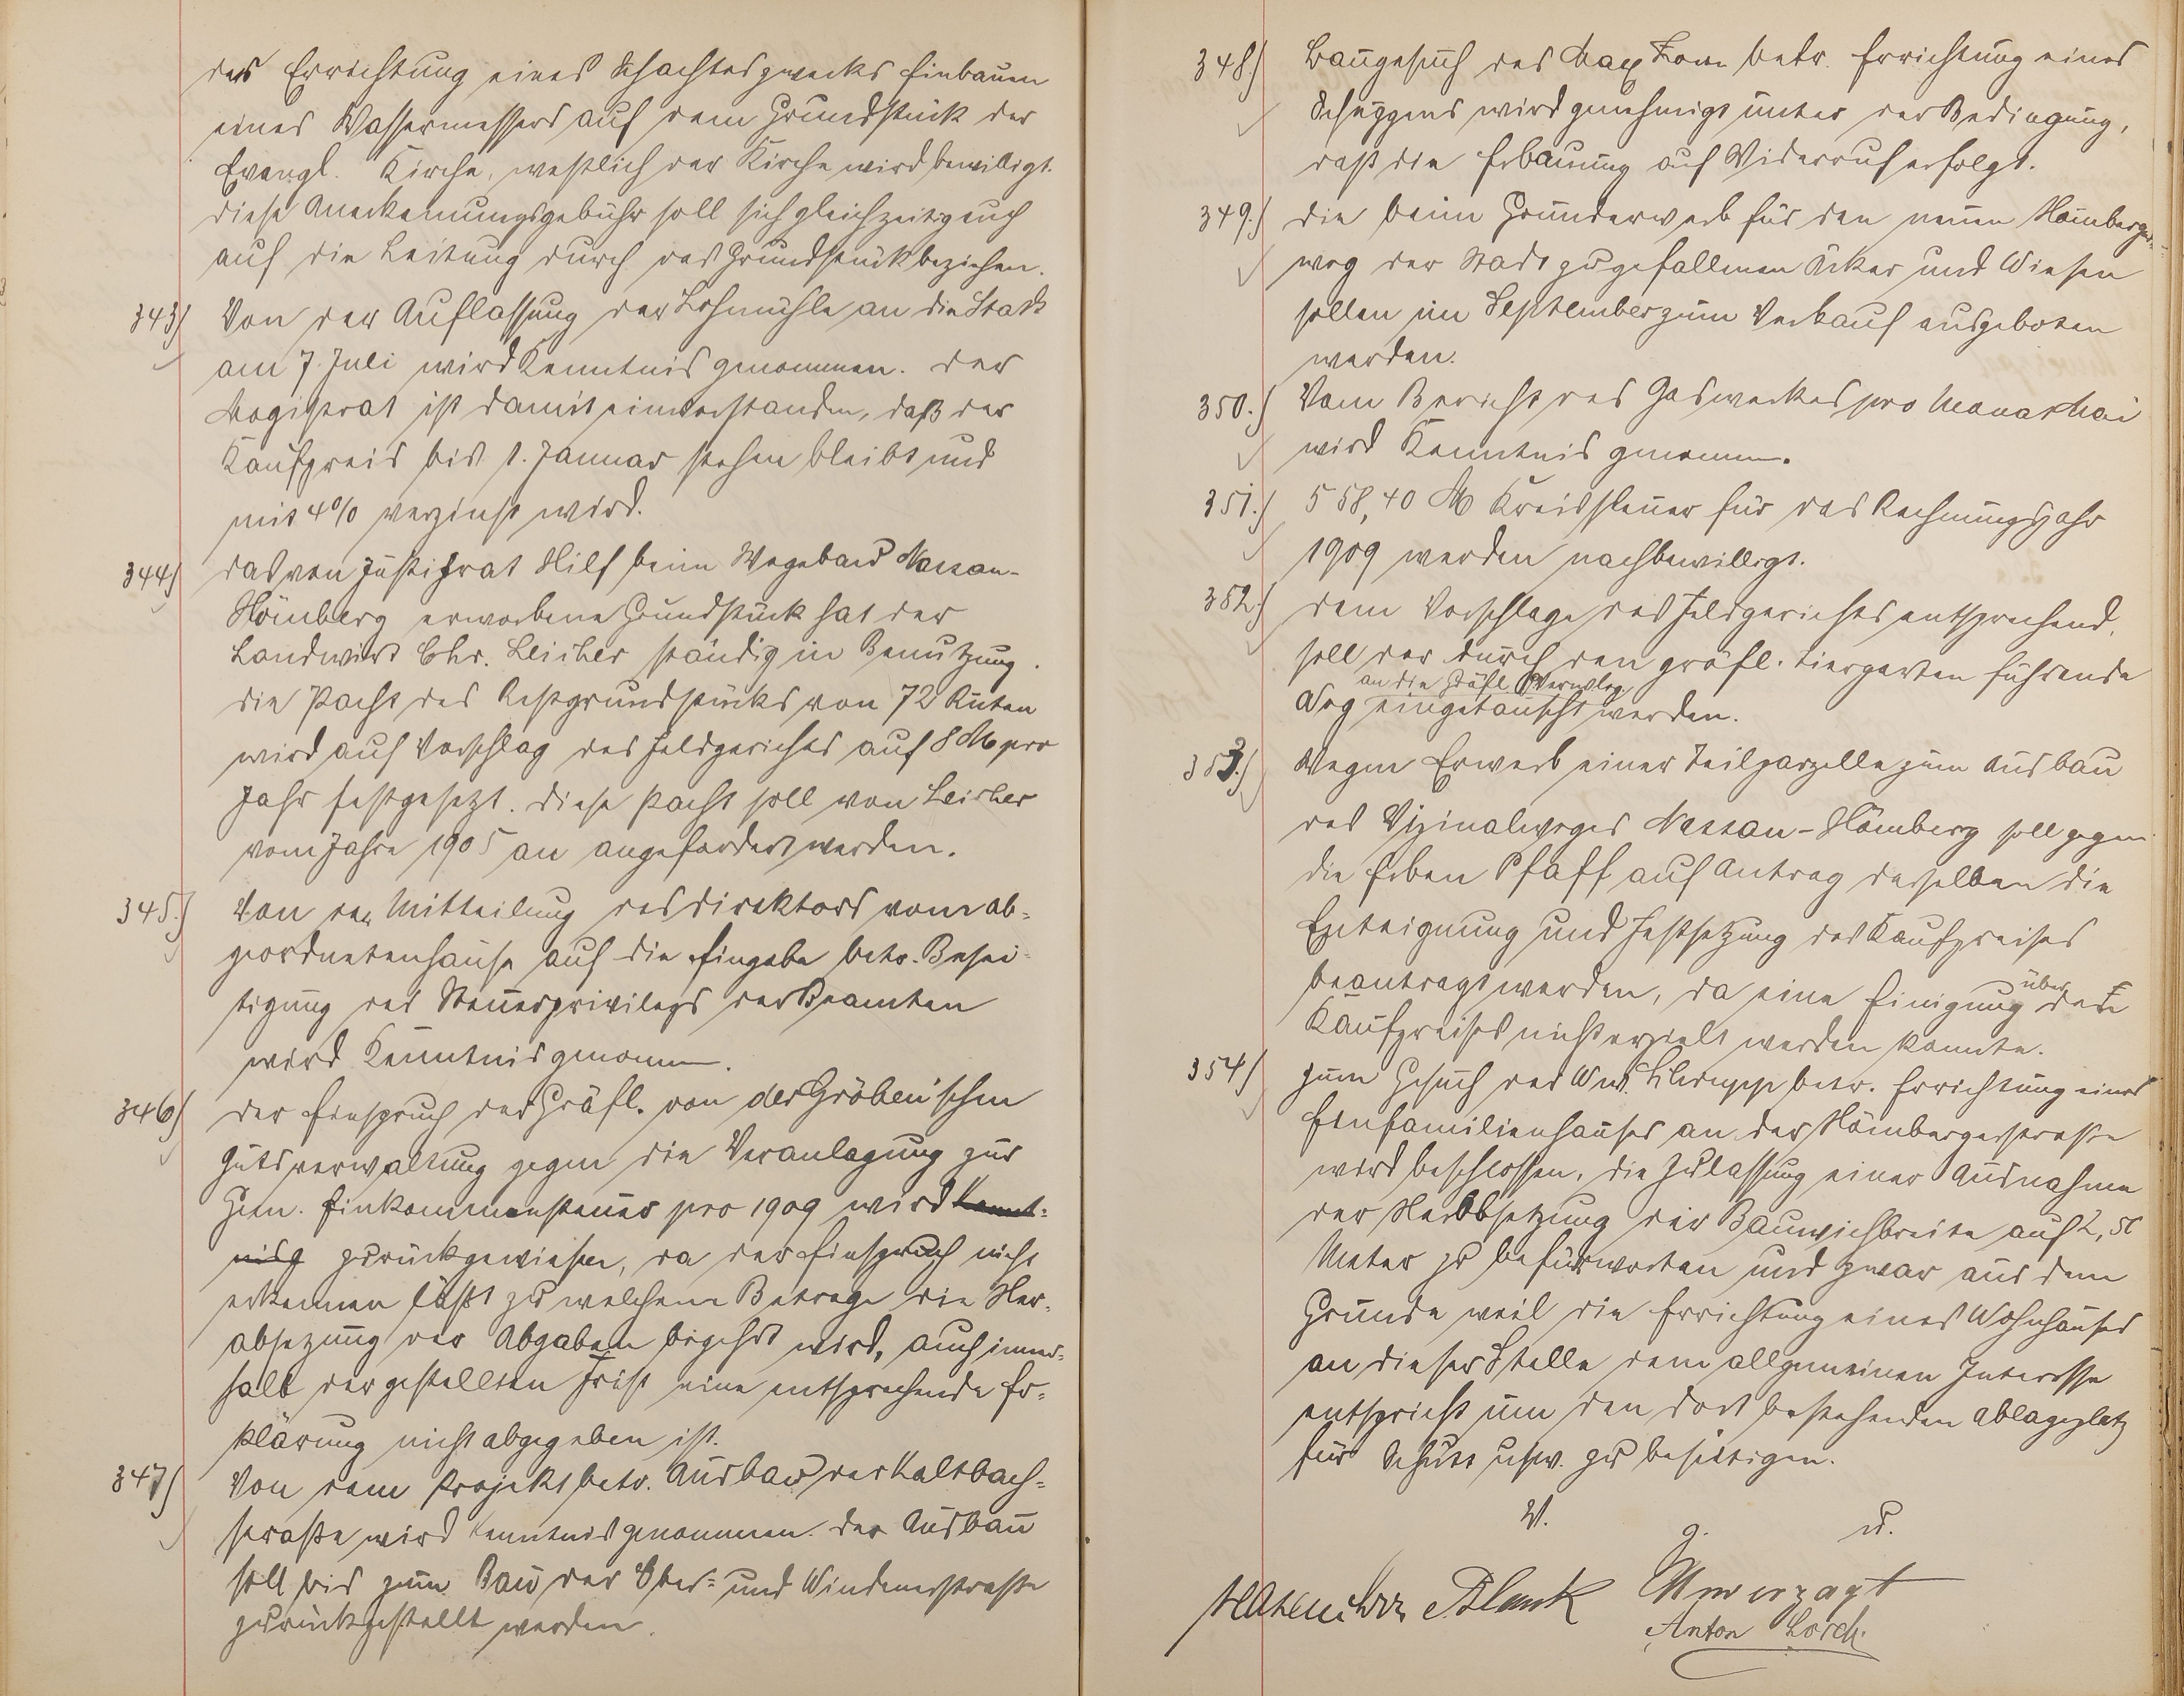 des Errichtung eines Schachtes zwecks Einbauen
eines Wassermessers auf dem Grundstück der
Evangl. Kirche, westlich der Kirche wird bewilligt.
diese Anerkennungsgebühr soll sich gleichzeitig auch
auf die Leitung durch das Grundstück beziehen.
343) Von der Auflassung der Lohmühle an die Stadt
am 7. Juli wird Kenntnis genommen. Der
Magistrat ist damit einverstanden, daß der
Kaufpreis bis 1. Januar stehen bleibt und
mit 4% verzinst wird.
344) Das von Justizrat Hilf beim Wegebau Nassau-
Hömberg erworbene Grundstück hat der
Landwirt Chr. Leicher ständig in Benutzung.
Die Pacht des Restgrundstücks von 72 Ruten
wird auf Vorschlag des Feldgerichtes auf 8 M pro
Jahr festgesetzt. Diese Pacht soll von Leicher
vom Jahre 1905 an angefordert werden.
345.) Von der Mitteilung des Direktors vom Ab-
geordnetenhause auf die Eingabe betr. Besei-
tigung des Steuerprivilegs der Beamten
wird Kenntnis genommen.
346) Der Einspruch der Gräfl. von der Gröben'schen
Gutsverwaltung gegen die Veranlagung zur
Gem. Einkommensteuer pro 1909 wird Kennt-
nis g zurückgewiesen, da der Einspruch nicht
erkennen läßt zu welchem Betrage die Her-
absezung der Abgaben begehrt wird, auch inner-
halb der gestellten Frist eine entsprechende Er-
klärung nicht abgegeben ist.
347) Von dem Projekt betr. Ausbau der Kaltbach-
straße wird Kenntnis genommen. Der Ausbau
soll bis zum Bau der Ober- und Windenerstraße
zurückgestellt werden.
348.) Baugesuch des Max betr. Errichtung eines
Schuppens wird genehmigt unter der Bedingung,
daß die Erbauung auf Widerruf erfolgt.
349.) Die beim Grunderwerb für den neuen Hömberger-
weg der Stadt zugefallenen Äcker und Wiesen
sollen im September zum Verkauf ausgeboten
werden.
350.) Vom Bericht des Gaswerkes pro Monat Mai
wird Kenntnis genommen.
351.) 558,40 M Kreissteuer für das Rechnungsjahr
1909 werden nachbewilligt.
352.) Dem Vorschlage des Feldgerichtes entsprechend,
soll der durch den gräfl. Tiergarten führende
an die Gräfl. Verwltg.
Weg eingetauscht werden.
353.) Wegen Erwerb einer Teilparzelle zum Ausbau
des Vizinalweges Nassau-Hömberg soll gegen
die Erben Pfaff auf Antrag derselben die
Enteignung und Festsetzung des Kaufpreises
beantragt werden, da eine Einigung über den
Kaufpreises nicht erzielt werden konnte.
354) Zum Gesuch des Wwe. betr. Errichtung eines
Einfamilienhauses an der Hömbergerstraße
wird beschlossen, die Zulassung einer Ausnahme
der Herabsetzung der Bauwichbreite auf 2,50
Meter zu befürworten und zwar aus dem
Grunde weil die Errichtung eines Wohnhauses
an dieser Stelle dem allgemeinen Interesse
entspricht um den dort bestehenden Ablageplatz
für Schutt usw. zu beseitigen.
V. g. u.
Hasenclever Blank Unverzagt
Anton Lorch.